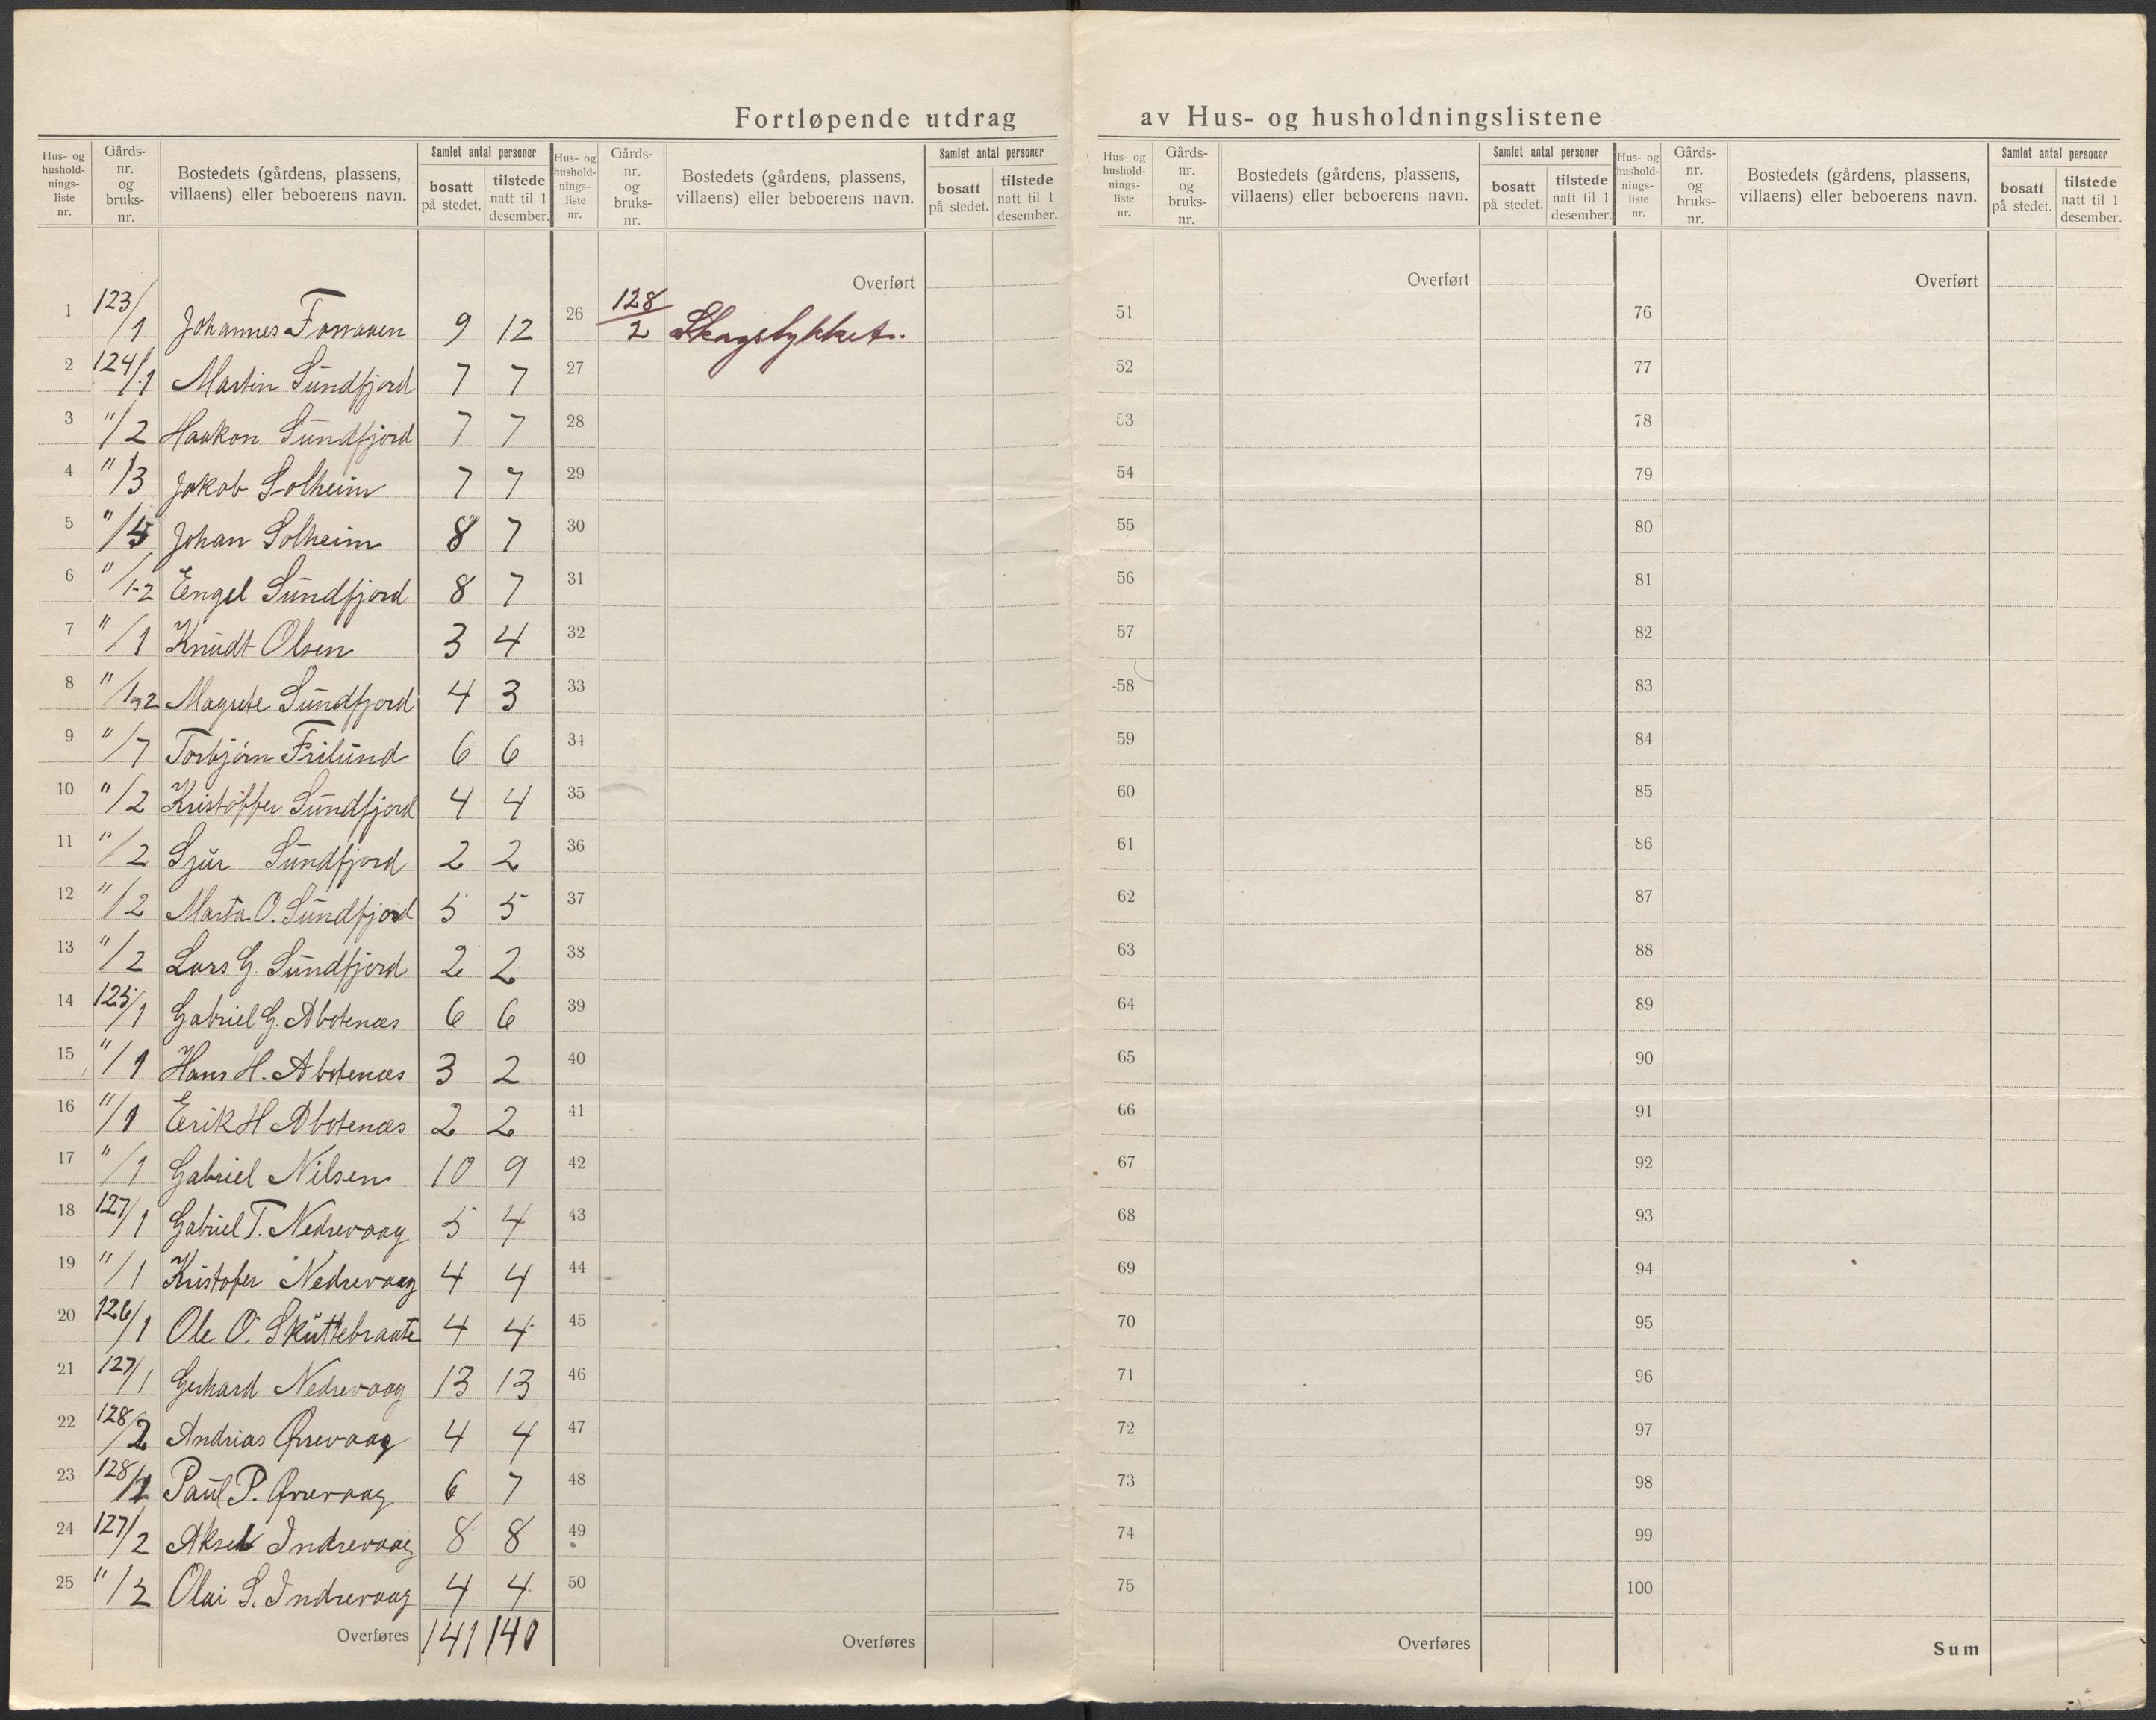 Fortløpende utdrag av Hus- og husholdningslistene
Hus- og hushold-nings-liste nr. Gårds-nr. og bruks-nr. Bostedets (gårdens, plassens, villaens) eller beboerens navn. Samlet antal personer bosatt på stedet. tilstede natt til 1 desember.
Hus- og hushold-nings-liste nr. Gårds-nr. og bruks-nr. Bostedets (gårdens, plassens, villaens) eller beboerens navn. Samlet antal personer bosatt på stedet. tilstede natt til 1 desember.
Hus- og hushold-nings-liste nr. Gårds-nr. og bruks-nr. Bostedets (gårdens, plassens, villaens) eller beboerens navn. Samlet antal personer bosatt på stedet. tilstede natt til 1 desember.
Hus- og hushold-nings-liste nr. Gårds-nr. og bruks-nr. Bostedets (gårdens, plassens, villaens) eller beboerens navn. Samlet antal personer bosatt på stedet. tilstede natt til 1 desember.
1 123/1 Johannes 9 12
2 124/1 Martin Sundfjord 7 7
3 "/2 Haakon Sundfjord 7 7
4 "/3 Jakob Solheim 7 7
5 "/5 Johan Solheim 8 7
6 "/1-2 Engel Sundfjord 8 7
7 "/1 Knudt Olsen 3 4
8 "/1,2 Magrete Sundfjord 4 3
9 "/7 Torbjörn Frilund 6 6
10 "/2 Kristoffer Sundfjord 4 4
11 "/2 Sjur Sundfjord 2 2
12 "/2 Marta O. Sundfjord 5 5
13 "/2 Lars G. Sundfjord 2 2
14 125/1 Gabriel G. Abotenæs 6 6
15 "/1 Hans H. Abotenæs 3 2
16 "/1 Erik H Abotenæs 2 2
17 "/1 Gabriel Nilsen 10 9
18 127/1 Gabriel T. Nedrevaag 5 4
19 "/1 Kristofer Nedrevaag 4 4
20 126/1 Ole O. Skuttebraate 4 4
21 127/1 Gerhard Nedrevaag 13 13
22 128/2 Andrias Øvrevaag 4 4
23 128/1 Paul P. Øvrevaag 6 7
24 127/2 Aksel Indrevaag 8 8
25 "/2 Olai S. Indrevaag 4 4
Overføres 141 140
Overført
26 128/2 Skogstykket.
27
28
29
30
31
32
33
34
35
36
37
38
39
40
41
42
43
44
45
46
47
48
49
50
Overføres
Overført
51
52
53
54
55
56
57
58
59
60
61
62
63
64
65
66
67
68
69
70
71
72
73
74
75
Overføres
Overført
76
77
78
79
80
81
82
83
84
85
86
87
88
89
90
91
92
93
94
95
96
97
98
99
100
Sum